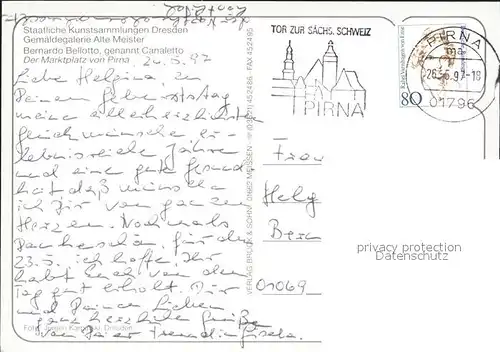 Staatliche Kunstsammlungen Dresden
Gemäldegalerie Alte Meister
Bernardo Bellotto, genannt Canaletto
Der Marktplatz von Pirna
26.5.97
Liebe Helgina, zu
Deinem Geburtstag
meine allerherzlichsten
Glückwünsche
Jahre
und eine gute Gesund
heit daß wünsche
ich Dir von ganzem
Herzen. Nochmals
Dankeschön für den
23.5. ich hoffe, Ihr
habt Euch von dem
Tag gut erholt. Dir
und Deinen Lieben
ganz herzliche Grüße
von Deiner Freundin Gisela.
Foto: Jürgen Karpinski, Dresden
VERLAG BRÜCK & SOHN 01662 MEISSEN (03521) 452486 FAX 452495
TOR ZUR SÄCHS. SCHWEIZ
PIRNA
80
PIRNA
26.5.97-18
01796
Frau
Helg
Berg
01069
privacy protection
Datenschutz